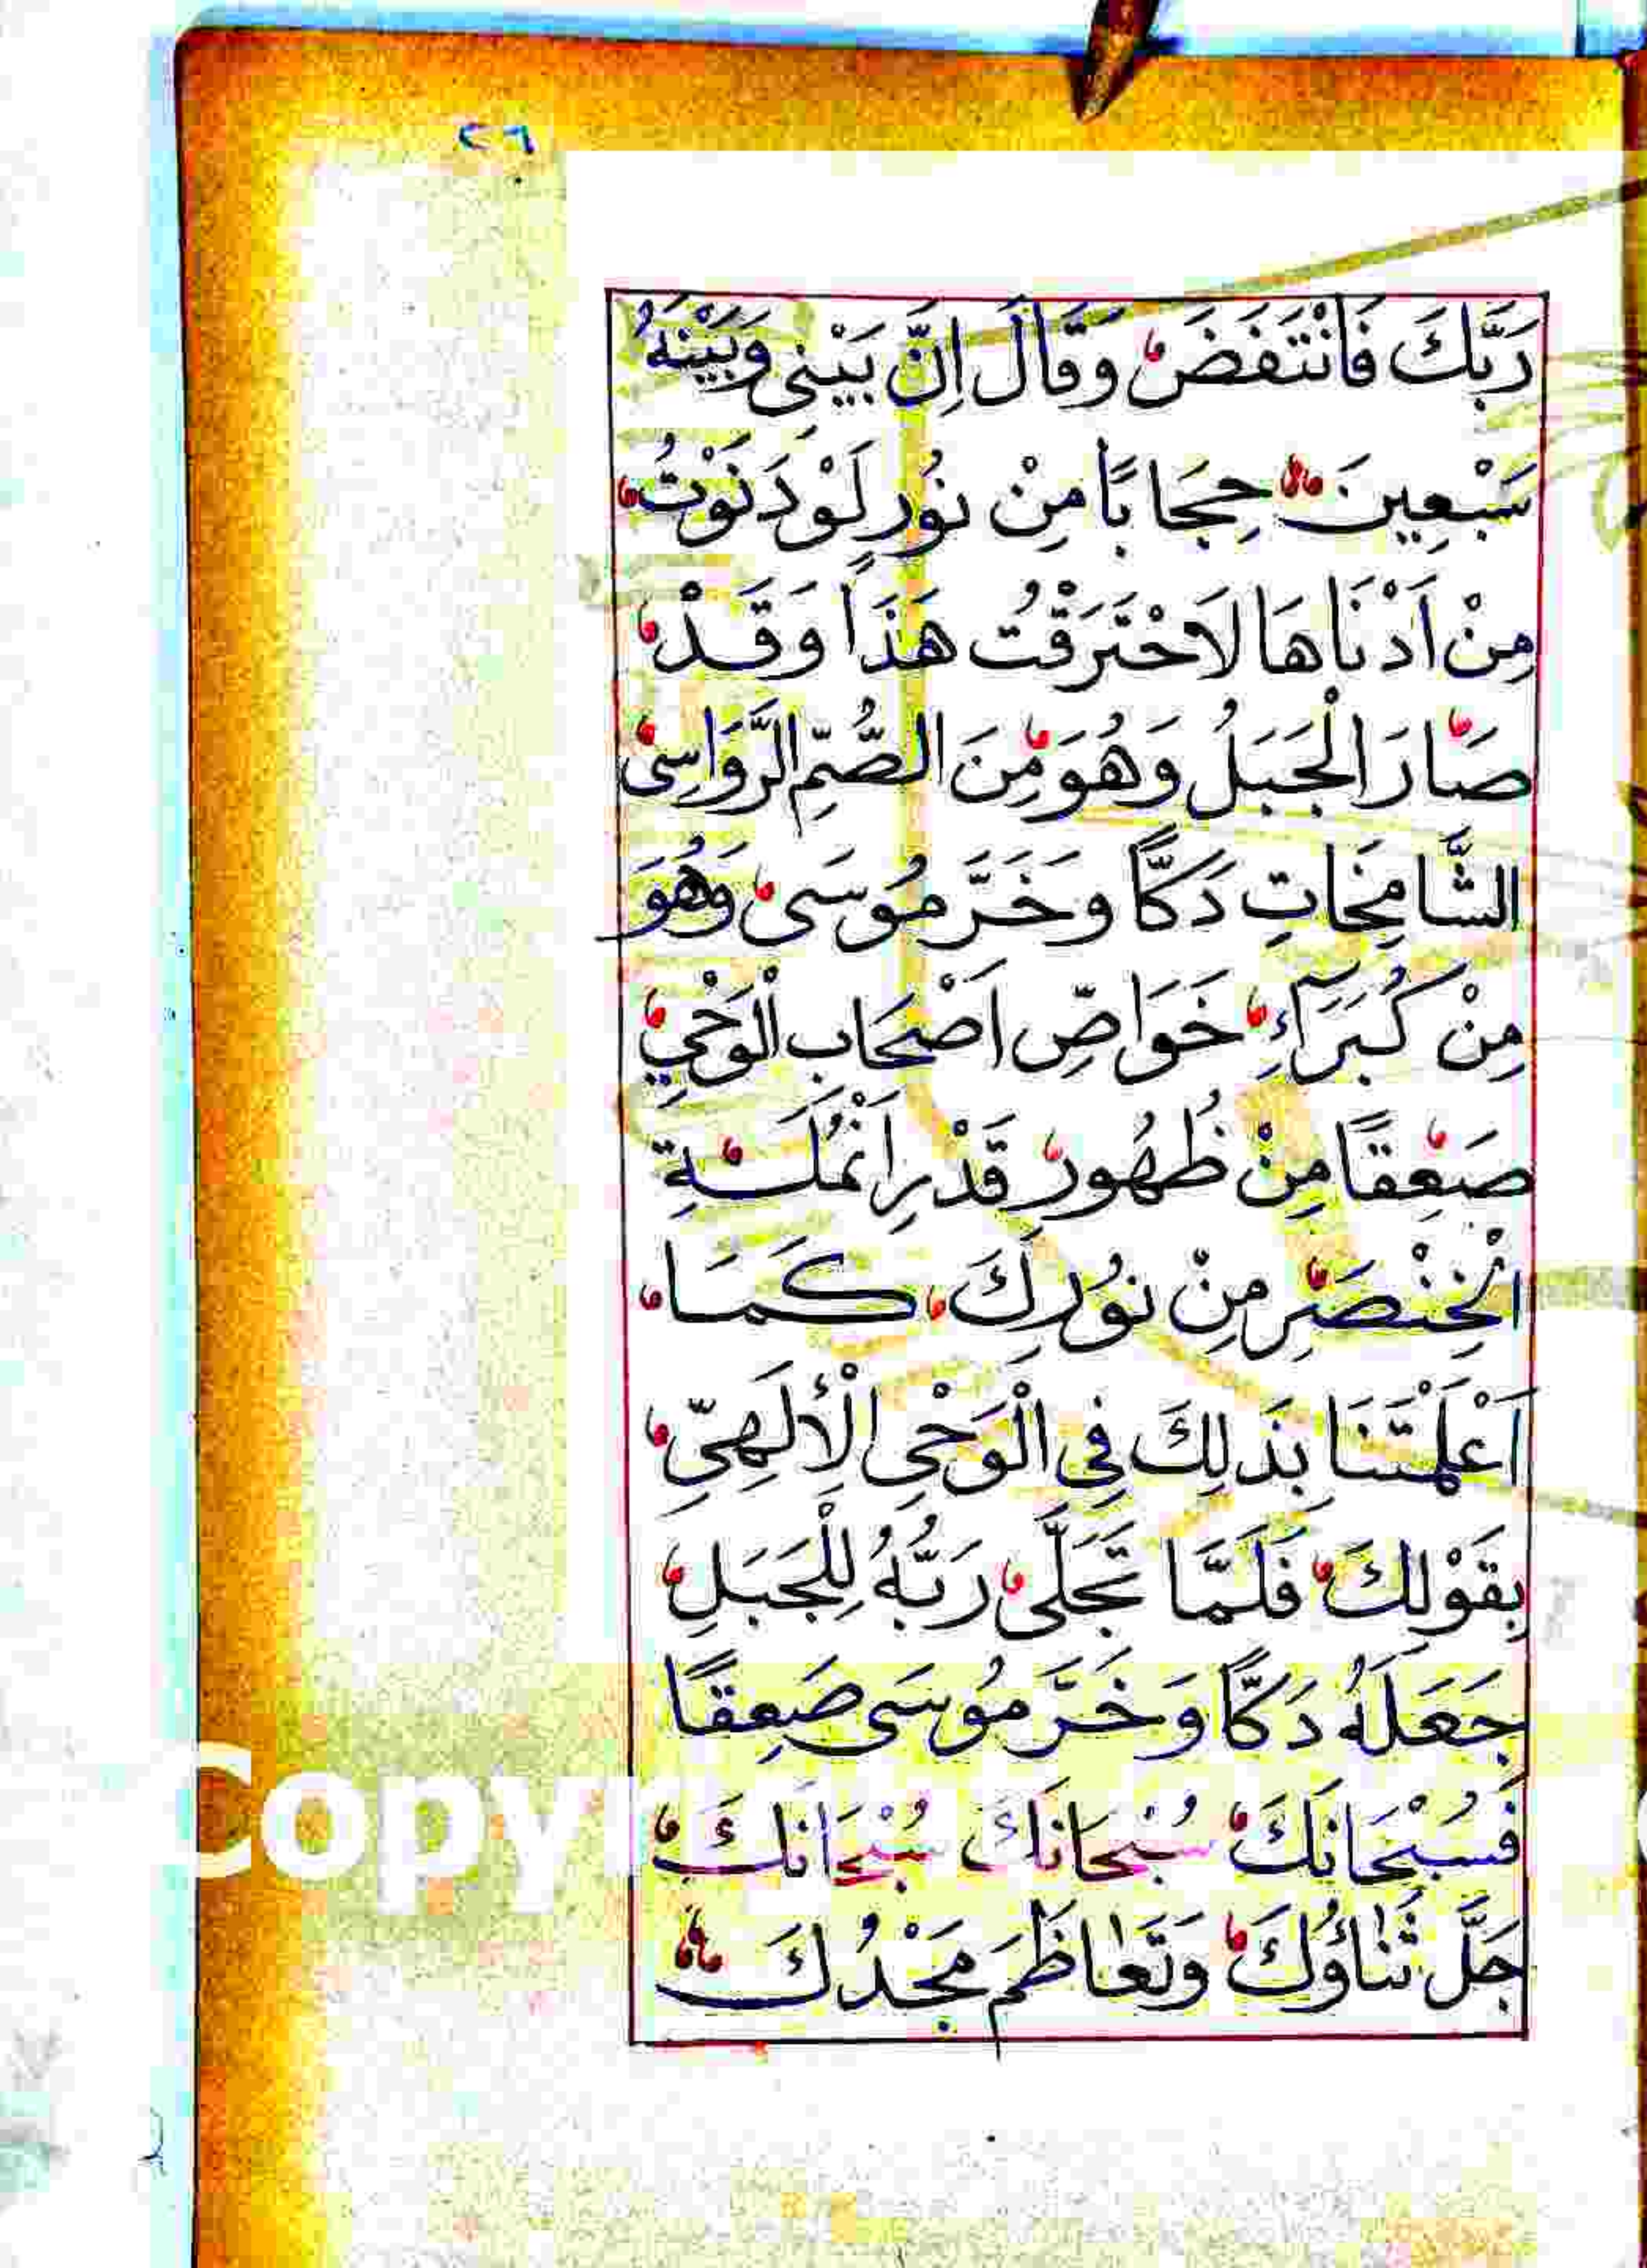 ٢٦
رَبَّكَ فَانْتَفَضَ وَقَالَ اِنَّ بَيْنِي وَبَيْنَهُ
سَبْعِينَ حِجَابًا مِنْ نُورٍ لَوْ دَنَوْتُ
مِنْ اَدْنَاهَا لَاحْتَرَقْتُ هَذَا وَقَدْ
صَارَ الْجَبَلُ وَهُوَ مِنَ الصُّمِّ الرَّوَاسِى
الشَّامِخَاتِ دَكًّا وَخَرَّ مُوسَى وَهُوَ
مِنْ كُبَرَآءِ خَوَاصِّ اَصْحَابِ الْوَحْيِ
صَعِقًا مِنْ ظُهُورِ قَدْرِ اَنْمُلَةِ
الْخِنْصَرِ مِنْ نُورِكَ كَمَا
اَعْلَمْتَنَا بِذَلِكَ فِي الْوَحْيِ الْأِلَهِىِّ
بِقَوْلِكَ فَلَمَّا تَجَلَّى رَبُّهُ لِلْجَبَلِ
جَعَلَهُ دَكًّا وَخَرَّ مُوسَى صَعِقًا
فَسُبْحَانَكَ سُبْحَانَكَ سُبْحَانَكَ
جَلَّ ثَنَاؤُكَ وَتَعَاظَمَ مَجْدُكَ
Copy